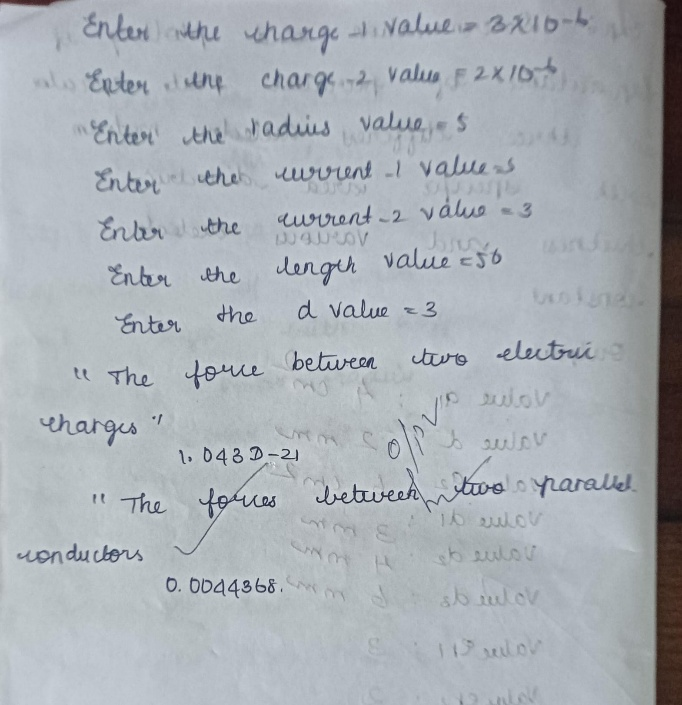 Enter the charge -1 value = 3x10-6
Enter the charge-2 value = 2x10-6
Enter the radius value = 5
Enter the current -1 value=5
Enter the current-2 value = 3
Enter the length value = 56
Enter the d value = 3
"The force between two electric
charges"
1.043D-21
O/P
"The forces between two parallel
conductors
0.0044368.